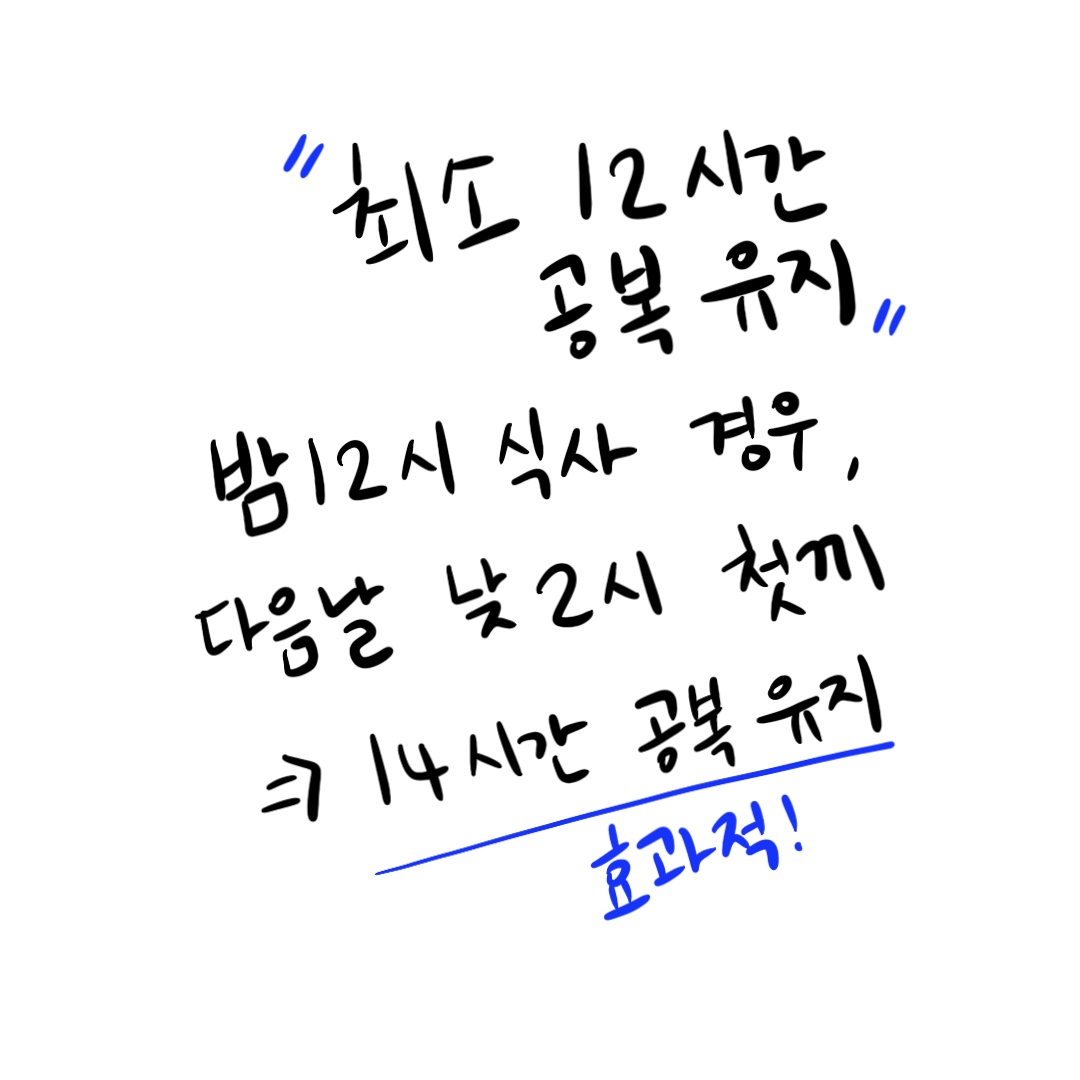 "최소 12시간
공복 유지"
밤12시 식사 경우,
다음날 낮2시 첫끼
⇒ 14시간 공복 유지
효과적!